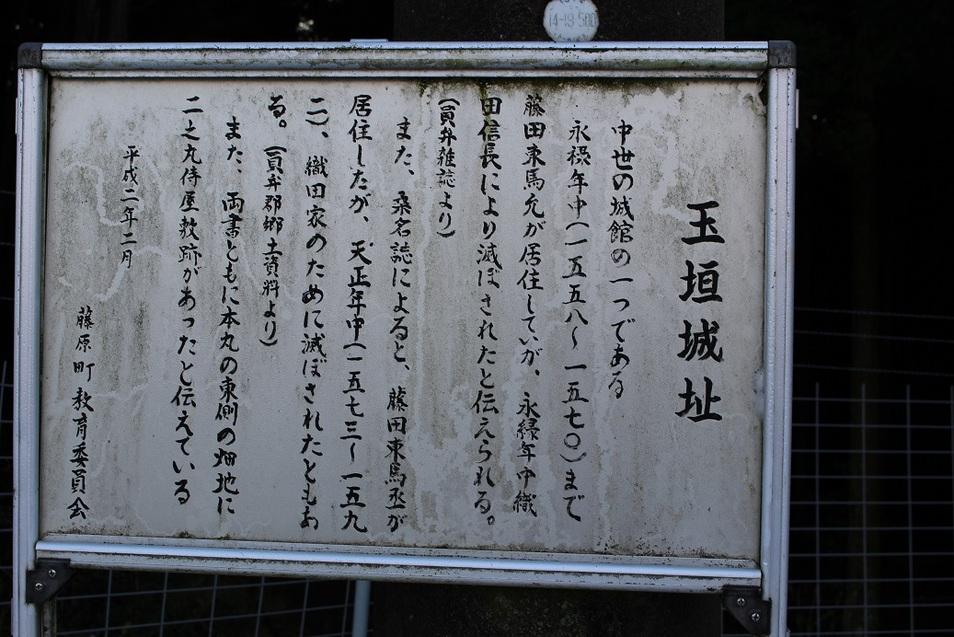 14-19 500
玉垣城址
中世の城館の一つである
永禄年中(一五五八〜一五七〇)まで
藤田東馬允が居住していが、永緑年中織
田信長により滅ぼされたと伝えられる。
(員弁雑誌より)
また、桑名誌によると、藤田東馬丞が
居住したが、天正年中(一五七三〜一五九
二)、織田家のために滅ぼされたともあ
る。(員弁郡郷土資料より)
また、両書ともに本丸の東側の畑地に
二之丸侍屋敷跡があったと伝えている
平成二年二月
藤原町教育委員会